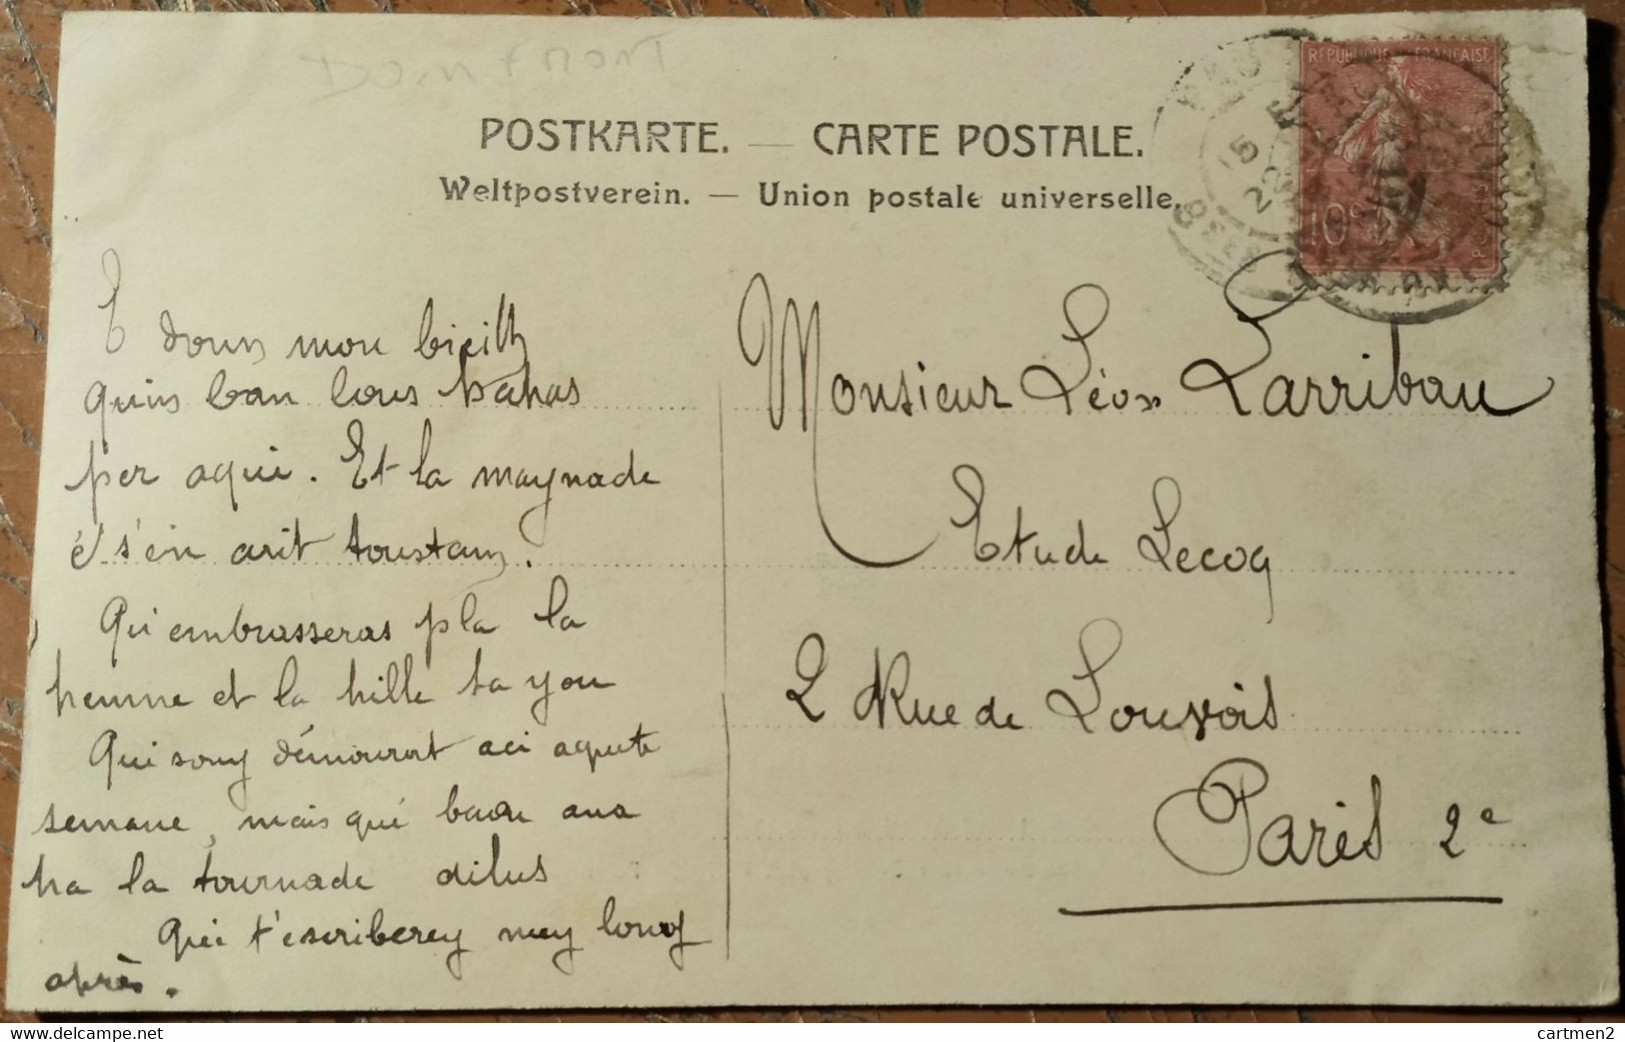 DOMFRONT
POSTKARTE. — CARTE POSTALE.
Weltpostverein. — Union postale universelle.
RÉPUBLIQUE FRANÇAISE
10c
E doun mou bieilh
quin ban lous hahas
per aqui. Et la maynade
é s'en arit toustam.
Qu'embrasseras pla la
henne et la hille ta you
Qui souy démourat aci aqueste
semane, mais qué baou ana
ha la tournade dilus
Qui t'escriberey mey loung
après.
Monsieur Léon Larribau
Etude Lecoq
2 Rue de Louvois
Paris 2e
cartmen2